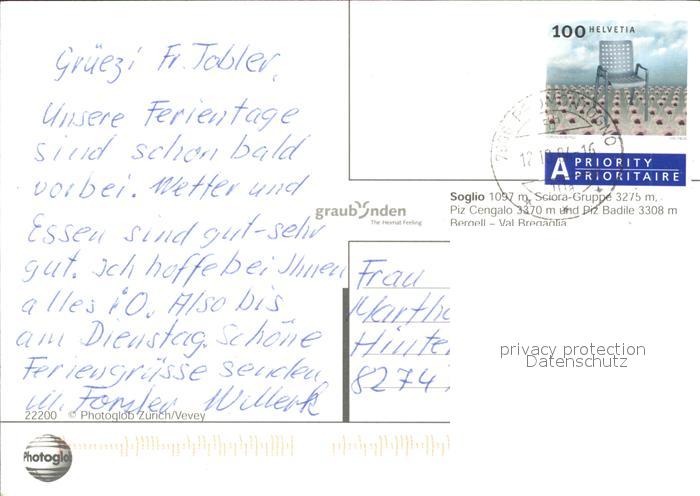 Grüezi Fr. Tobler,
Unsere Ferientage
sind schon bald
vorbei. Wetter und
Essen sind gut-sehr
gut. Ich hoffe bei Ihnen
alles i.O. Also bis
am Dienstag. Schöne
Feriengrüsse senden
M. Forster
22200 © Photoglob Zürich/Vevey
Photoglob
graubünden
The Heimat Feeling
100 HELVETIA
A PRIORITY
PRIORITAIRE
Soglio 1097 m, Sciora-Gruppe 3275 m,
Piz Cengalo 3370 m und Piz Badile 3308 m
Bergell – Val Bregaglia
Frau
Marth
Hinte
8274
privacy protection
Datenschutz